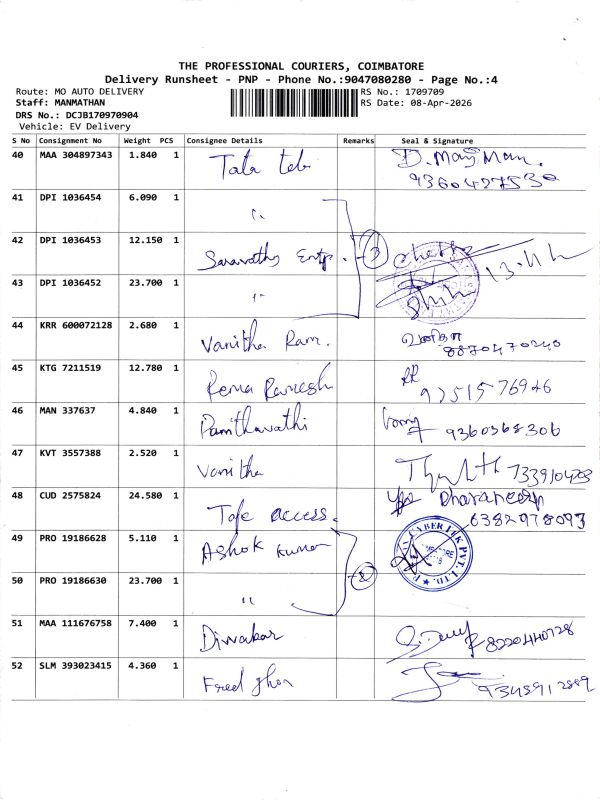 THE PROFESSIONAL COURIERS, COIMBATORE
Delivery Runsheet - PNP - Phone No.:9047080280 - Page No.:4
Route: MO AUTO DELIVERY RS No.: 1709709
Staff: MANMATHAN RS Date: 08-Apr-2026
DRS No.: DCJB170970904
Vehicle: EV Delivery
S No Consignment No Weight PCS Consignee Details Remarks Seal & Signature
40 MAA 304897343 1.840 1 Tata tele D. Mani Man.
9360427530
41 DPI 1036454 6.090 1 "
42 DPI 1036453 12.150 1 Saravathy Entp. 3
13.11
43 DPI 1036452 23.700 1 "
44 KRR 600072128 2.680 1 Vanitha Ram.
8870470240
45 KTG 7211519 12.780 1 Rema Ramesh
9251576946
46 MAN 337637 4.840 1 9360368306
47 KVT 3557388 2.520 1 Vanitha 7339104203
48 CUD 2575824 24.580 1 access. Dharaneesh
6382978093
49 PRO 19186628 5.110 1 Ashok Kumar
50 PRO 19186630 23.700 1 " 2
51 MAA 111676758 7.400 1 Diwakar 8220440728
52 SLM 393023415 4.360 1 Fred Jhon 9348912889